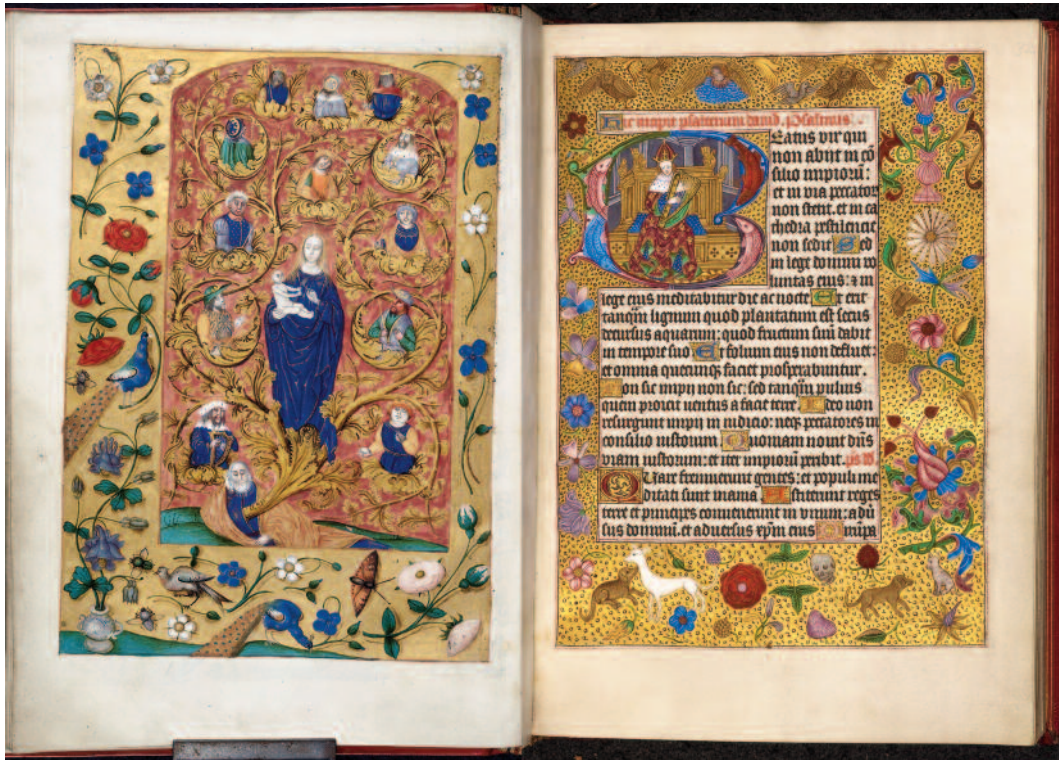 Hic incipit psalterium dauid. Psalmus
Beatus vir qui
non abijt in cō
silio impiorū:
et in via peccator
non stetit. et in ca
thedra pestilentie
non sedit Sed
in lege domini vo
luntas eius: & in
lege eius meditabitur die ac nocte Et erit
tanqm̄ lignum quod plantatum est secus
decursus aquarum: quod fructum suū dabit
in tempore suo Et folium eius non defluet:
et omnia quecunqꝫ faciet prosperabuntur.
Non sic impij non sic: sed tanqm̄ puluis
quem proicit uentus a facie terre Ideo non
resurgunt impij in iudicio: neqꝫ peccatores in
consilio iustorum Quoniam nouit dn̄s
viam iustorum: et iter impiorū peribit. ps
Quare fremuerunt gentes: et populi me
ditati sunt inania Astiterunt reges
terre et principes conuenerunt in vnum: adū
sus dominū. et aduersus xpm̄ eius Dirūpa